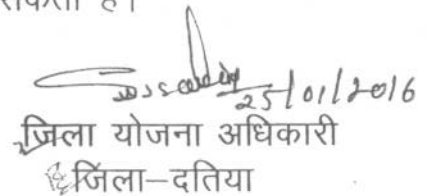 सकता है।
25/01/2016
जिला योजना अधिकारी
जिला–दतिया